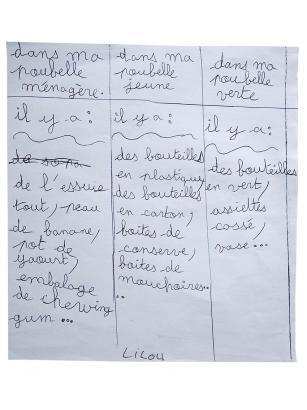 dans ma
poubelle
ménagère.
il y a:
de sopa
de l'essuie
tout, peau
de banane,
pot de
yaourt,
embalage
de chewing
gum...
dans ma
poubelle
jeune
il y a:
des bouteilles
en plastique,
des bouteilles
en carton,
boites de
conserve,
boites de
mouchoires...
dans ma
poubelle
verte
il y a:
des bouteilles
en vert,
assiettes
cossé,
vase...
Lilou